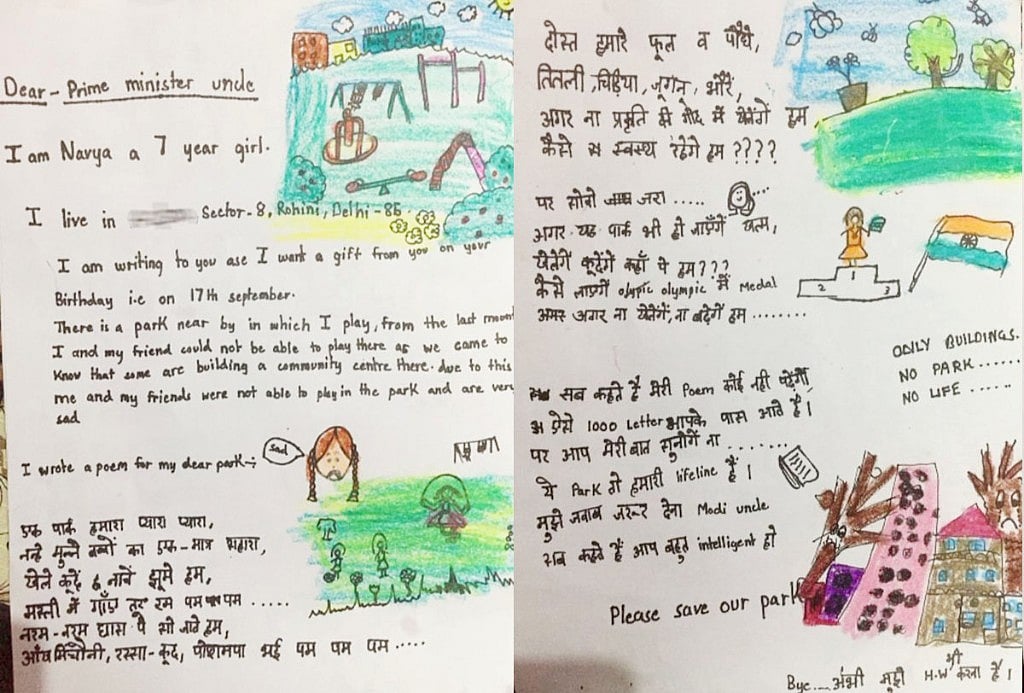 Dear - Prime minister uncle
I am Navya a 7 year girl.
I live in Sector-8, Rohini, Delhi-85
I am writing to you ase I want a gift from you on your
Birthday i.e on 17th september.
There is a park near by in which I play, from the last mont
I and my friend could not be able to play there as we came to
know that some are building a community centre there. due to this
me and my friends were not able to play in the park and are very
sad
I wrote a poem for my dear park-:
sad
एक पार्क हमारा प्यारा प्यारा,
नन्हे मुन्ने बच्चों का एक-मात्र सहारा,
खेले कूदें नाचें झूमे हम,
मस्ती में गाँए तूर रम पम पम .....
नरम-नरम घास पे सो जाते हम,
आँख मिचोनी, रस्सा-कूद, पोशमपा भई पम पम पम .....
दोस्त हमारे फूल व पौधे,
तितली, चिड़िया, जूगनू, भौंरें,
अगर ना प्रकृति की गोद में खेलेंगे हम
कैसे स्वस्थ रहेगे हम ????
पर सोचो जरा .....
अगर यह पार्क भी हो जाएँगें खत्म,
खेलेगें कूदेंगे कहाँ पे हम???
कैसे लाएगें olypic olympic में Medal
अगर ना खेलेंगें, ना बढ़ेगें हम ........
2 3
ONLY BUILDINGS.
NO PARK .....
NO LIFE ......
सब कहते है मेरी Poem कोई नही पढ़ेगा,
ऐसे 1000 Letter आपके पास आते है।
पर आप मेरी बात सुनोगें ना ........
ये Park तो हमारी lifeline है।
मुझे जवाब जरूर देना Modi uncle
सब कहते हैं आप बहुत intelligent हो
Please save our park
Bye... अभी मुझे भी H.W करना है।